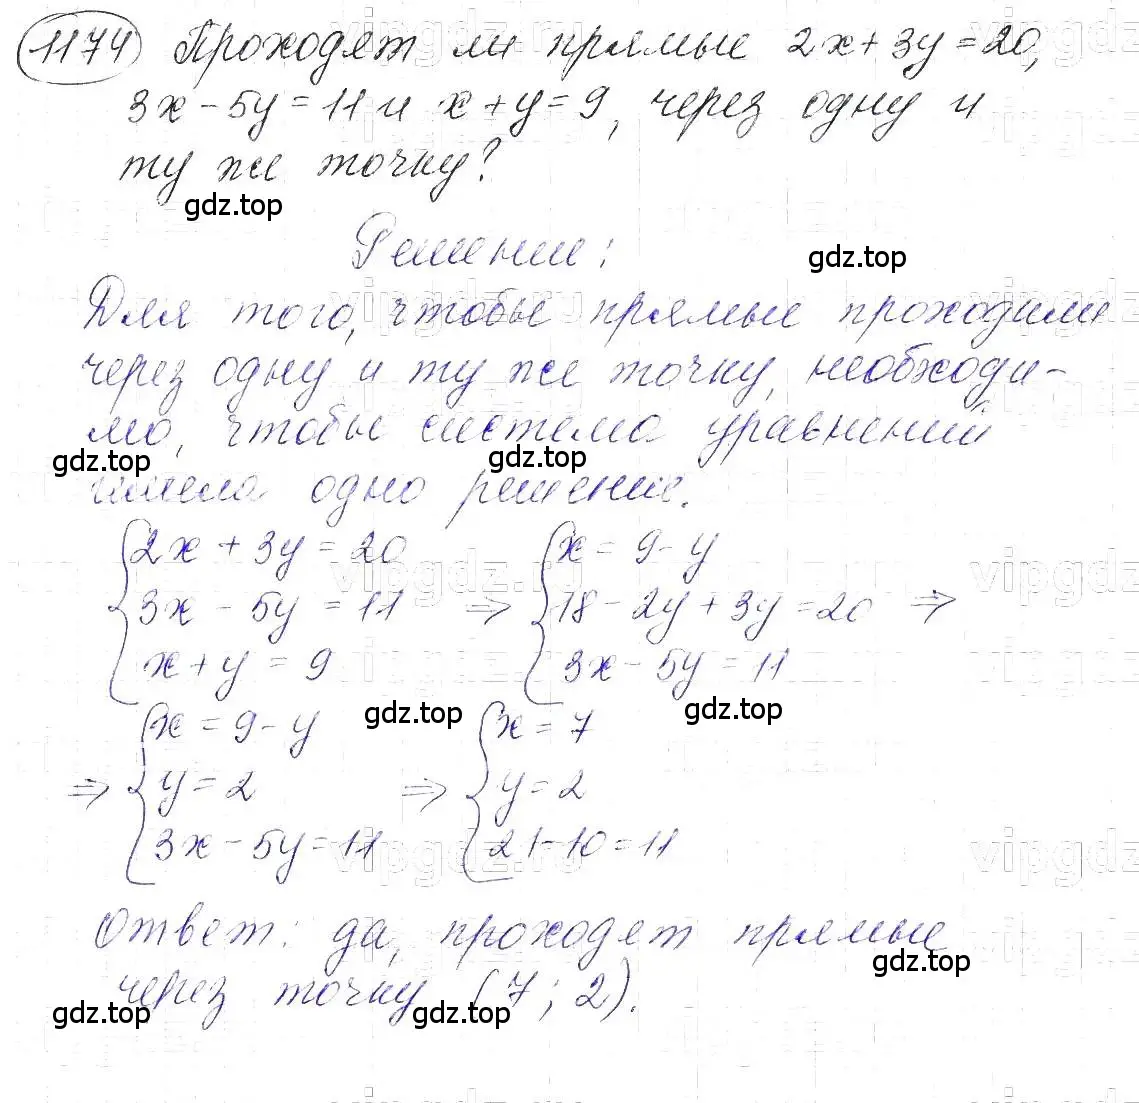 1174 Проходят ли прямые 2x + 3y = 20,
3x - 5y = 11 и x + y = 9, через одну и
ту же точку?
gdz.top
Решение:
gdz.top
Для того, чтобы прямые проходили
через одну и ту же точку, необходи-
мо, чтобы система уравнений
gdz.top gdz.top
имела одно решение.
2x + 3y = 20 x = 9 - y
3x - 5y = 11 ⇒ 18 - 2y + 3y = 20 ⇒
x + y = 9 3x - 5y = 11
gdz.top gdz.top
x = 9 - y x = 7
⇒ y = 2 ⇒ y = 2
3x - 5y = 11 21 - 10 = 11
Ответ: да, проходят прямые
gdz.top
через точку (7; 2).
gdz.top gdz.top